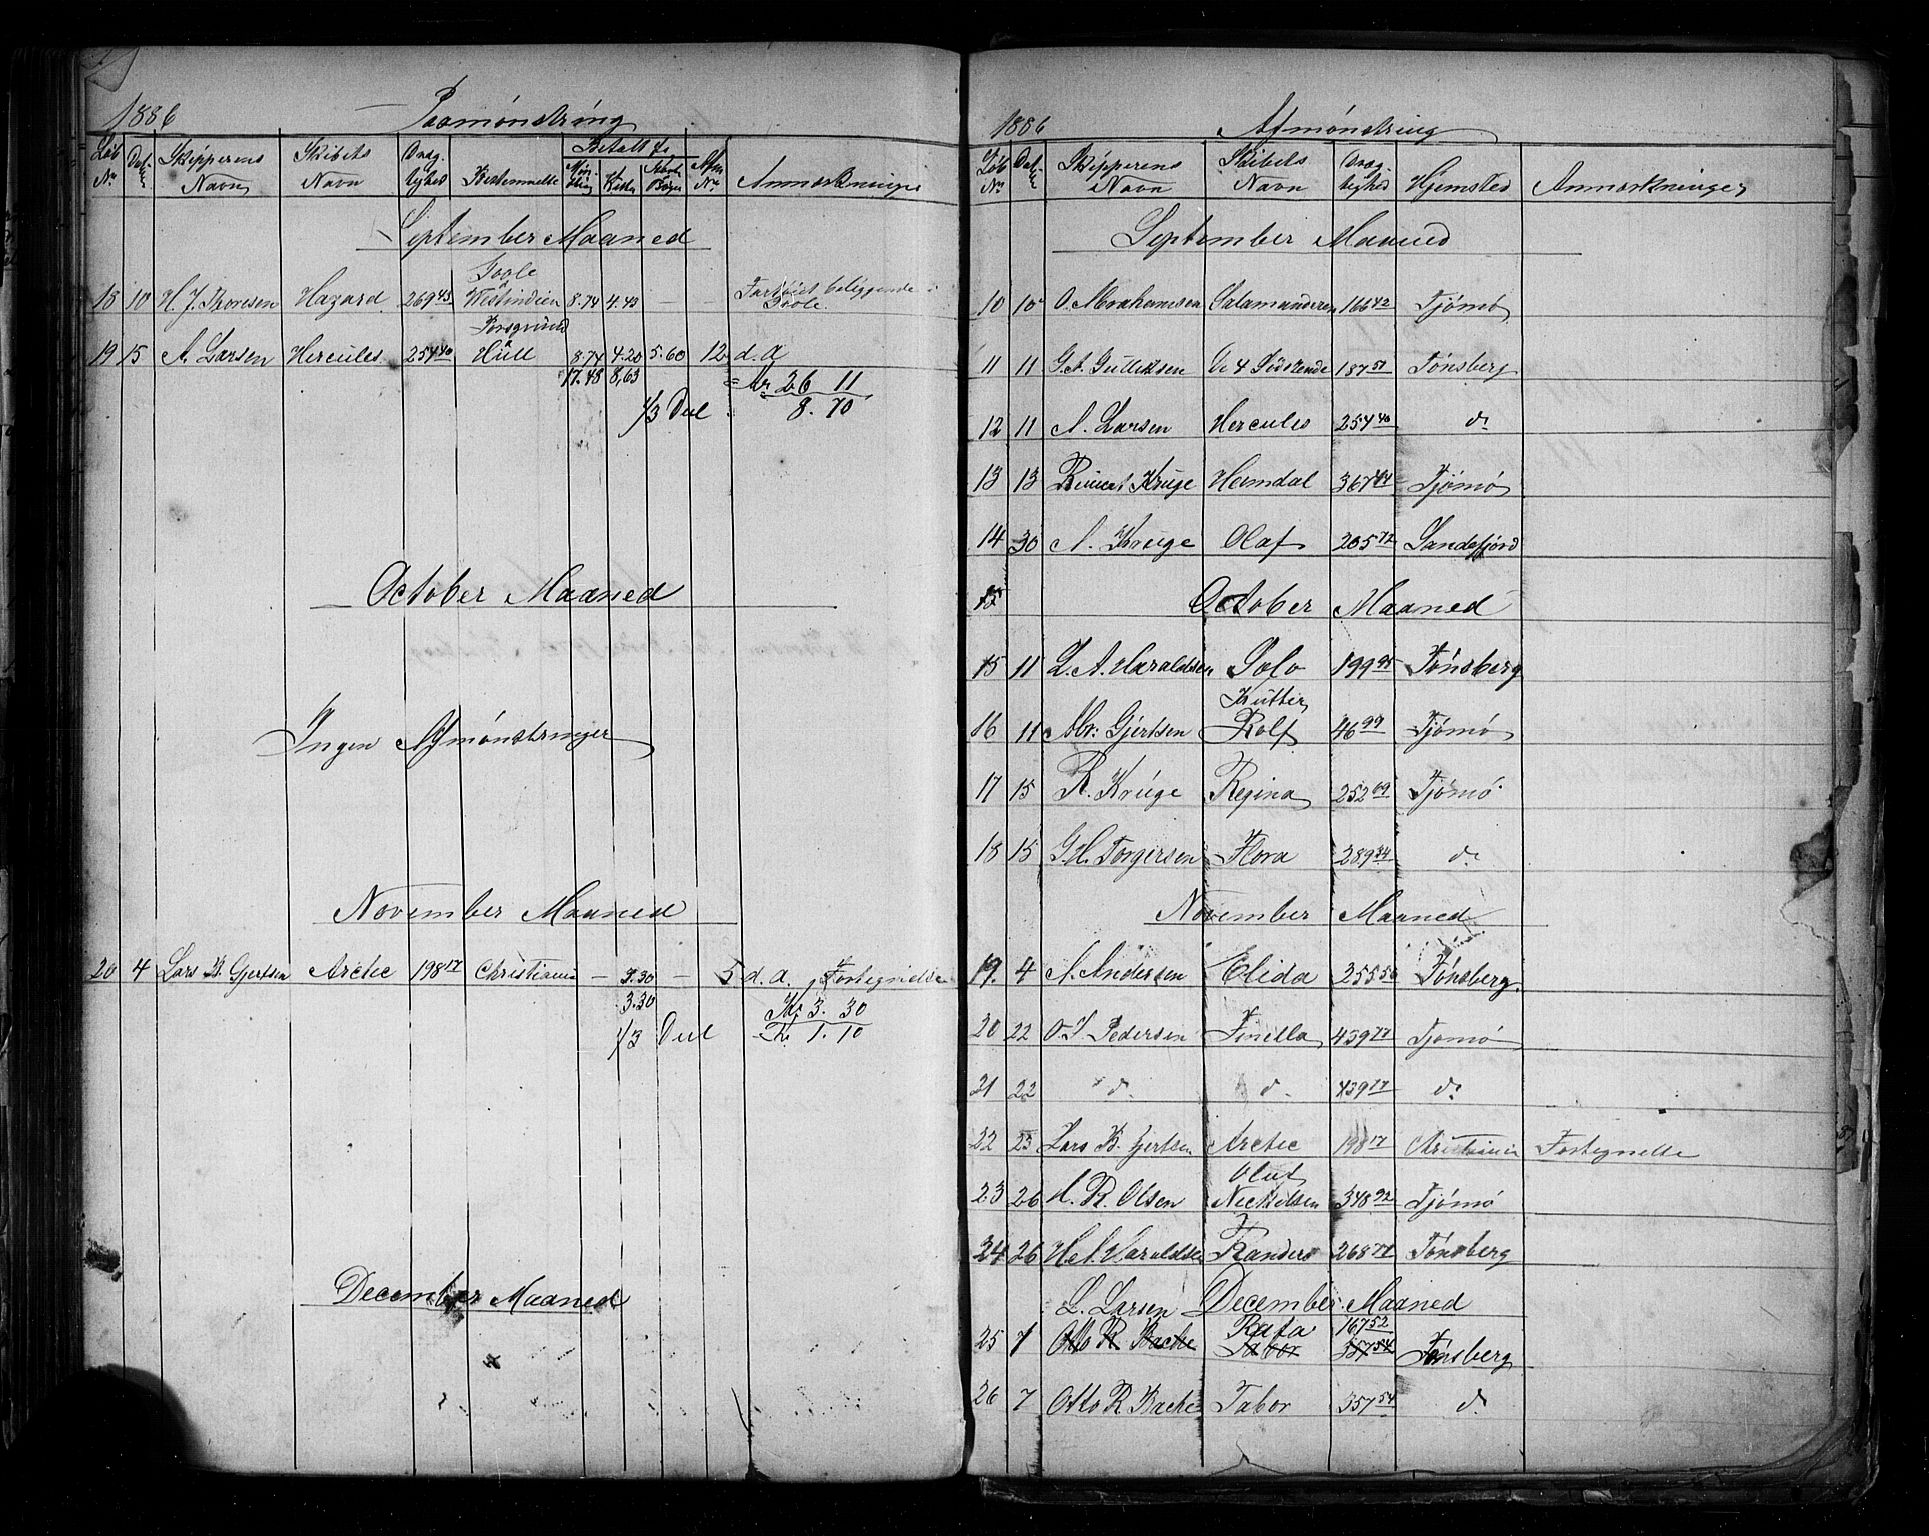 1886 Paamönstring
Löb Nr Dat. Skipperens Navn Skibets Navn Dræg-tighed Bestemmelse Betalt for Mönstring Afm Nr Anmærkninger
September Maaned
Poole
18 10 H. J. Thoresen Hazard 269 43 a Vestindien 8.74 4.43 — — Fartöiet beliggende i Poole.
Porsgrund
19 15 A. Larsen Hercules 254 40 a Hull 8.74 4.20 5.60 12 d. a
17.48 8,63 = Kr 26 11
1/3 Deel 8.70
October Maaned
Ingen Afmönstringer
November Maaned
20 4 Lars B. Gjertsen Arctic 198 17 Christiania — 3.30 — 5 d. a. Fortegnelse
3.30 Kr 3. 30
1/3 Deel Kr 1.10
December Maaned
1886 Afmönstring
Löb Nr. Dat. Skipperens Navn Skibets Navn Dræg-tighed Hjemsted Anmærkninger
September Maaned
10 10 O. Abrahamsen Salamanderen 166 42 Tjömö
11 11 G. A. Gulliksen De 4 Södskende 187 51 Tönsberg
12 11 A. Larsen Hercules 254 40 do
13 13 Reinert Kruge Hemdal 367 44 Tjömö
14 30 A. Kruge Olaf 205 72 Sandefjord
15 October Maaned
15 11 L. A. Haraldsen Polo 199 95 Tönsberg
Kutter
16 11 Abr: Gjertsen Rolf 46 99 Tjömö
17 15 R. Kruge Regina 252 69 Tjömö
18 15 G. H. Torgersen Flora 289 34 do
November Maaned
19. 4 A. Andersen Elida 255 56 Tönsberg.
20 22 O. J. Pedersen Finella 439 77 Tjömö
21 22 do do 439 77 do
22 23 Lars B. Gjertsen Arctic 198 17 Christiania Fortegnelse
Oluf
23 26 H. R. Olsen Nickelsen 348 92 Tjömö
24 26 H. A. Haraldsen Randers 268 77 Tönsberg
L. Larsen December Maaned
Rafa 167 52
25 7 Otto R Bache Tabor 357 54 Tönsberg
26 7 Otto R Bache Tabor 357 54 do